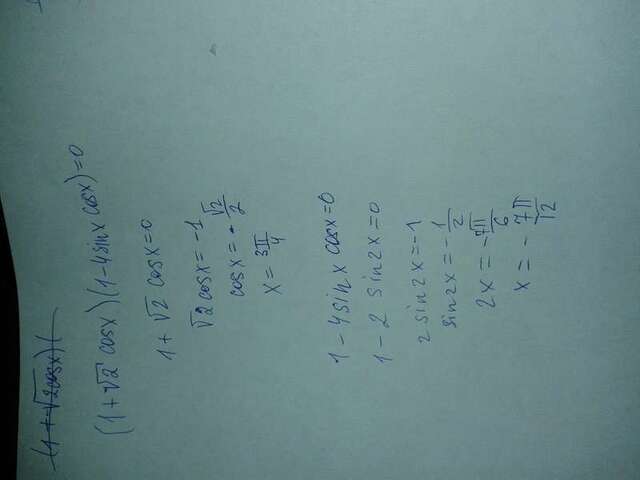 (1+√2cosx)(
(1+√2 cosx)(1-4sinx cosx)=0
1+√2 cosx=0
√2 cosx=-1
cosx=-√2/2
x=3π/4
1-4sinx cosx=0
1-2 sin2x=0
2sin2x=-1
sin2x=-1/2
2x=-7π/6
x=-7π/12